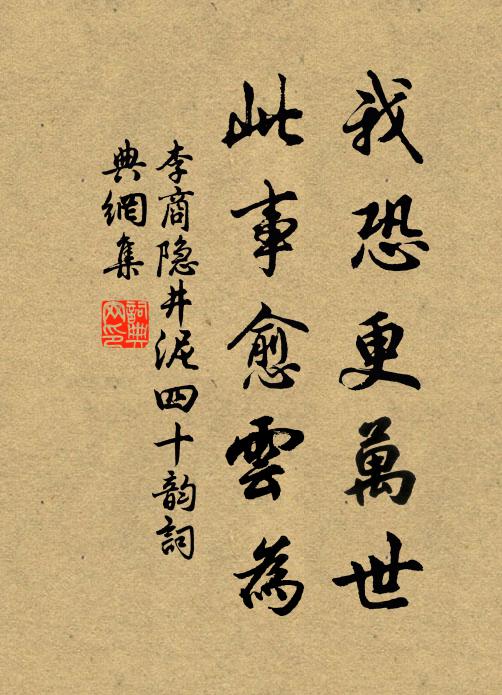 我恐更萬世
此事愈雲為
李商隐井泥四十韵詞
典網集
詞典
网印